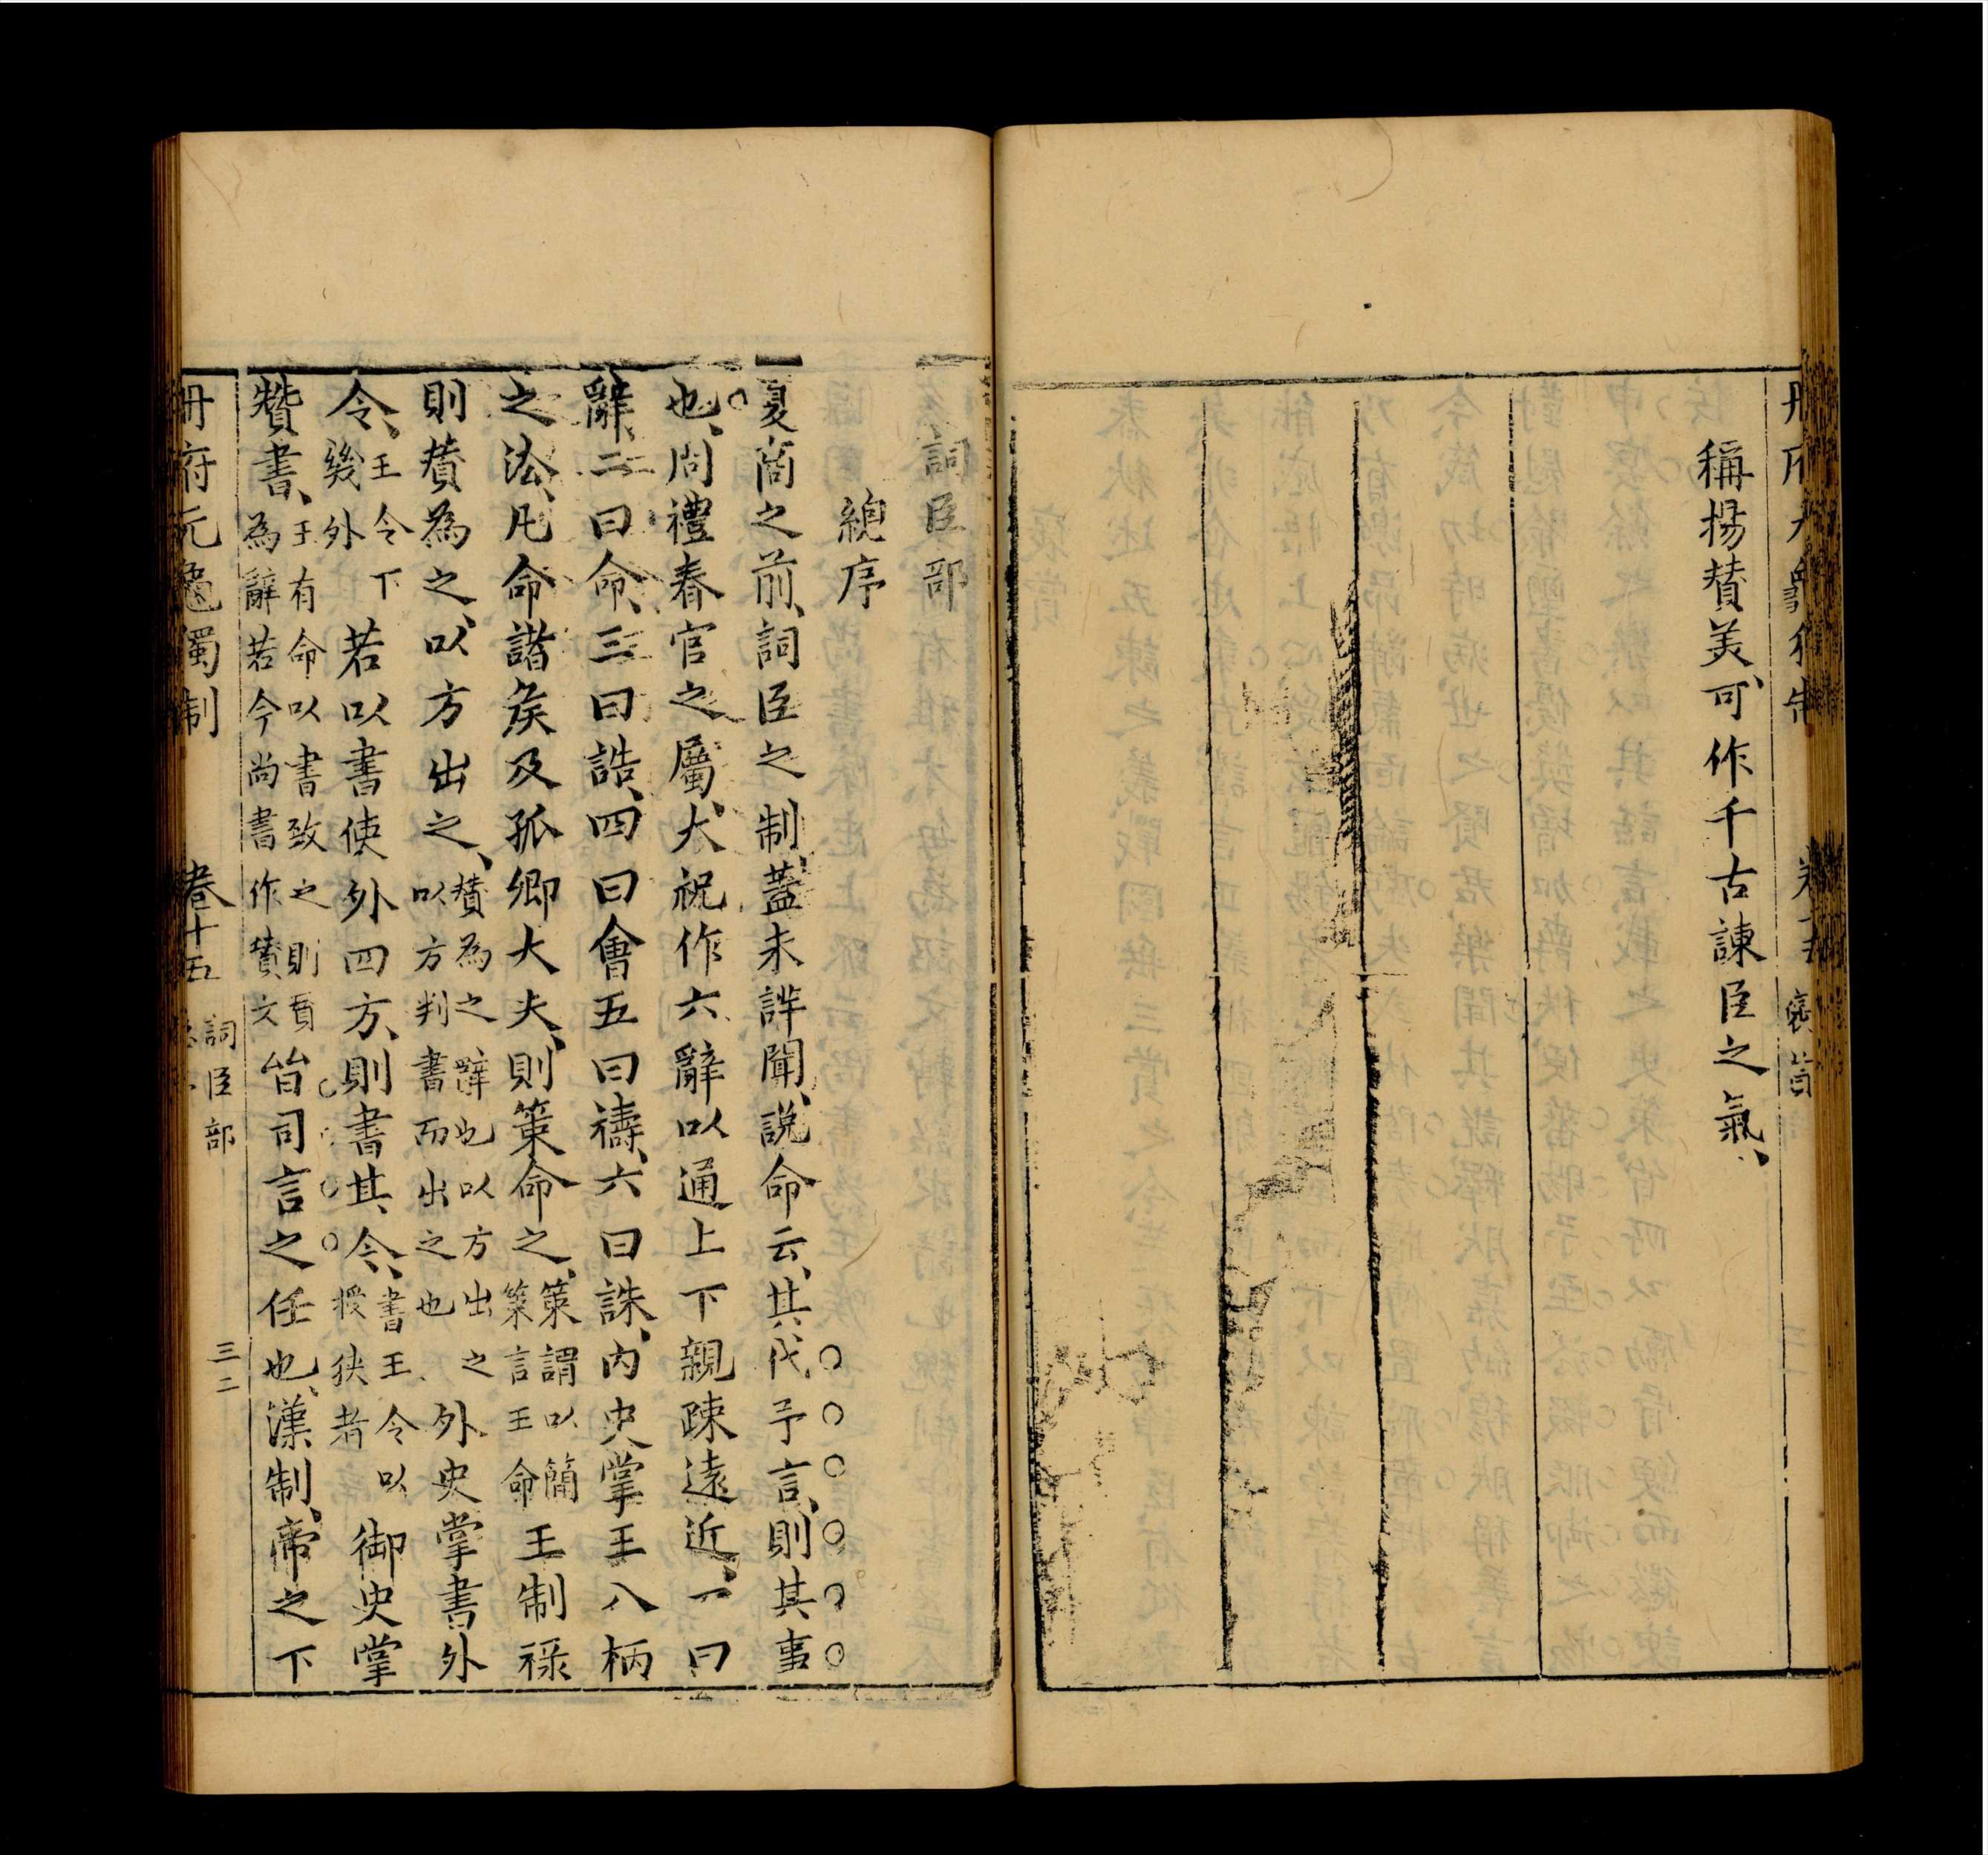 稱揚賛美可作千古諫臣之氣
詞臣部
總序
夏商之前詞臣之制蓋未詳聞說命云其代予言則其事
也周禮春官之屬大祝作六辭以通上下親疎遠近一曰
辭二曰命三曰誥四曰會五曰禱六曰誄内史掌王八柄
之法凡命諸侯及孤卿大夫則策命之策謂以簡策言王命王制祿
則賛為之以方出之賛為之辭也以方出之以方判書而出之也外史掌書外
令王令下畿外若以書使外四方則書其令書王令以授使者御史掌
贊書王有命以書致之則賛為辭若今尚書作賛文皆司言之任也漢制帝之下
冊府元龜獨制 卷十五 詞臣部 三二